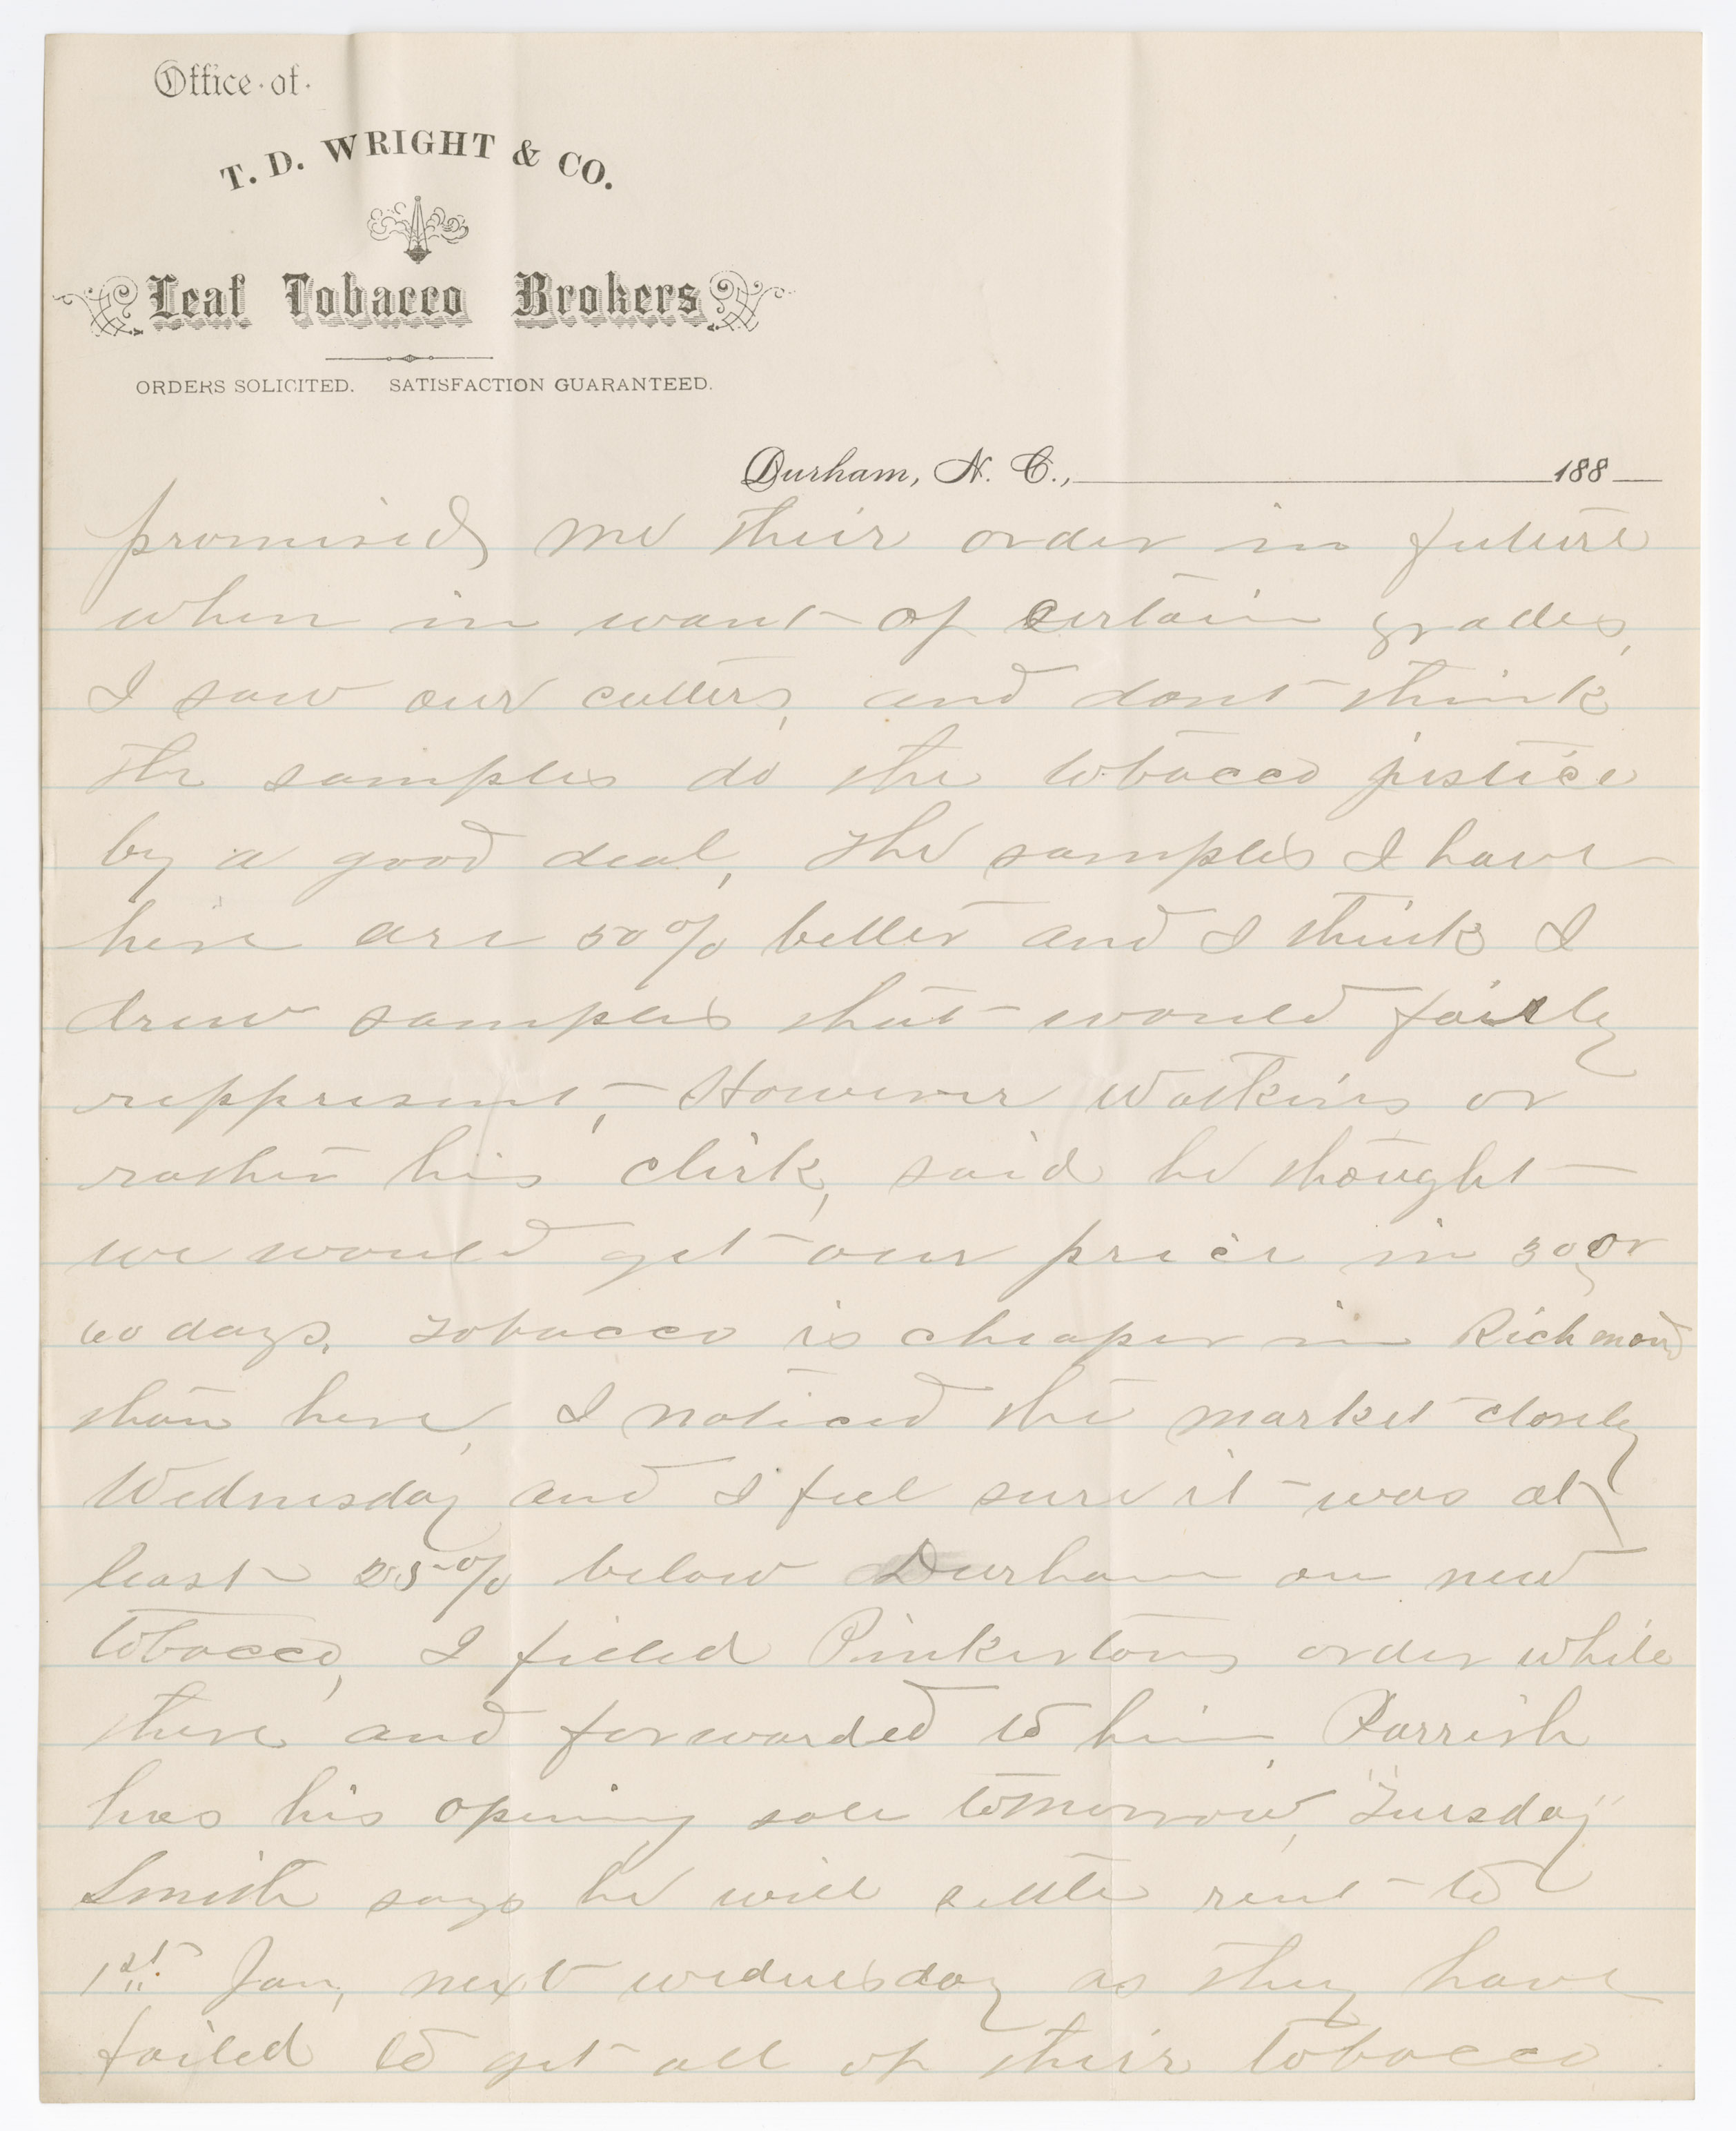 Office of
T. D. WRIGHT & CO.
Leaf Tobacco Brokers
ORDERS SOLICITED. SATISFACTION GUARANTEED.
Durham, N. C., 188
promised me their order in future
when in want of certain grades,
I saw our cutters, and dont think
the samples do the tobacco justice
by a good deal, The samples I have
here are 50% better and I think I
drew samples that would fairly
reppresent, However Watkins or
rather his clerk, said he thought
we would get our price in 30 or
60 days. Tobacco is cheaper in Richmond
than here, I noticed the market closely
Wednesday and I feel sure it was at
least 25% below Durham on new
tobacco, I filled Pinkertons order while
there and forwarded to him, Parrish
has his opening sale tomorrow, "Tuesday"
Smith says he will settle rent to
1st Jan, next wednesday as they have
failed to get all of their tobacco